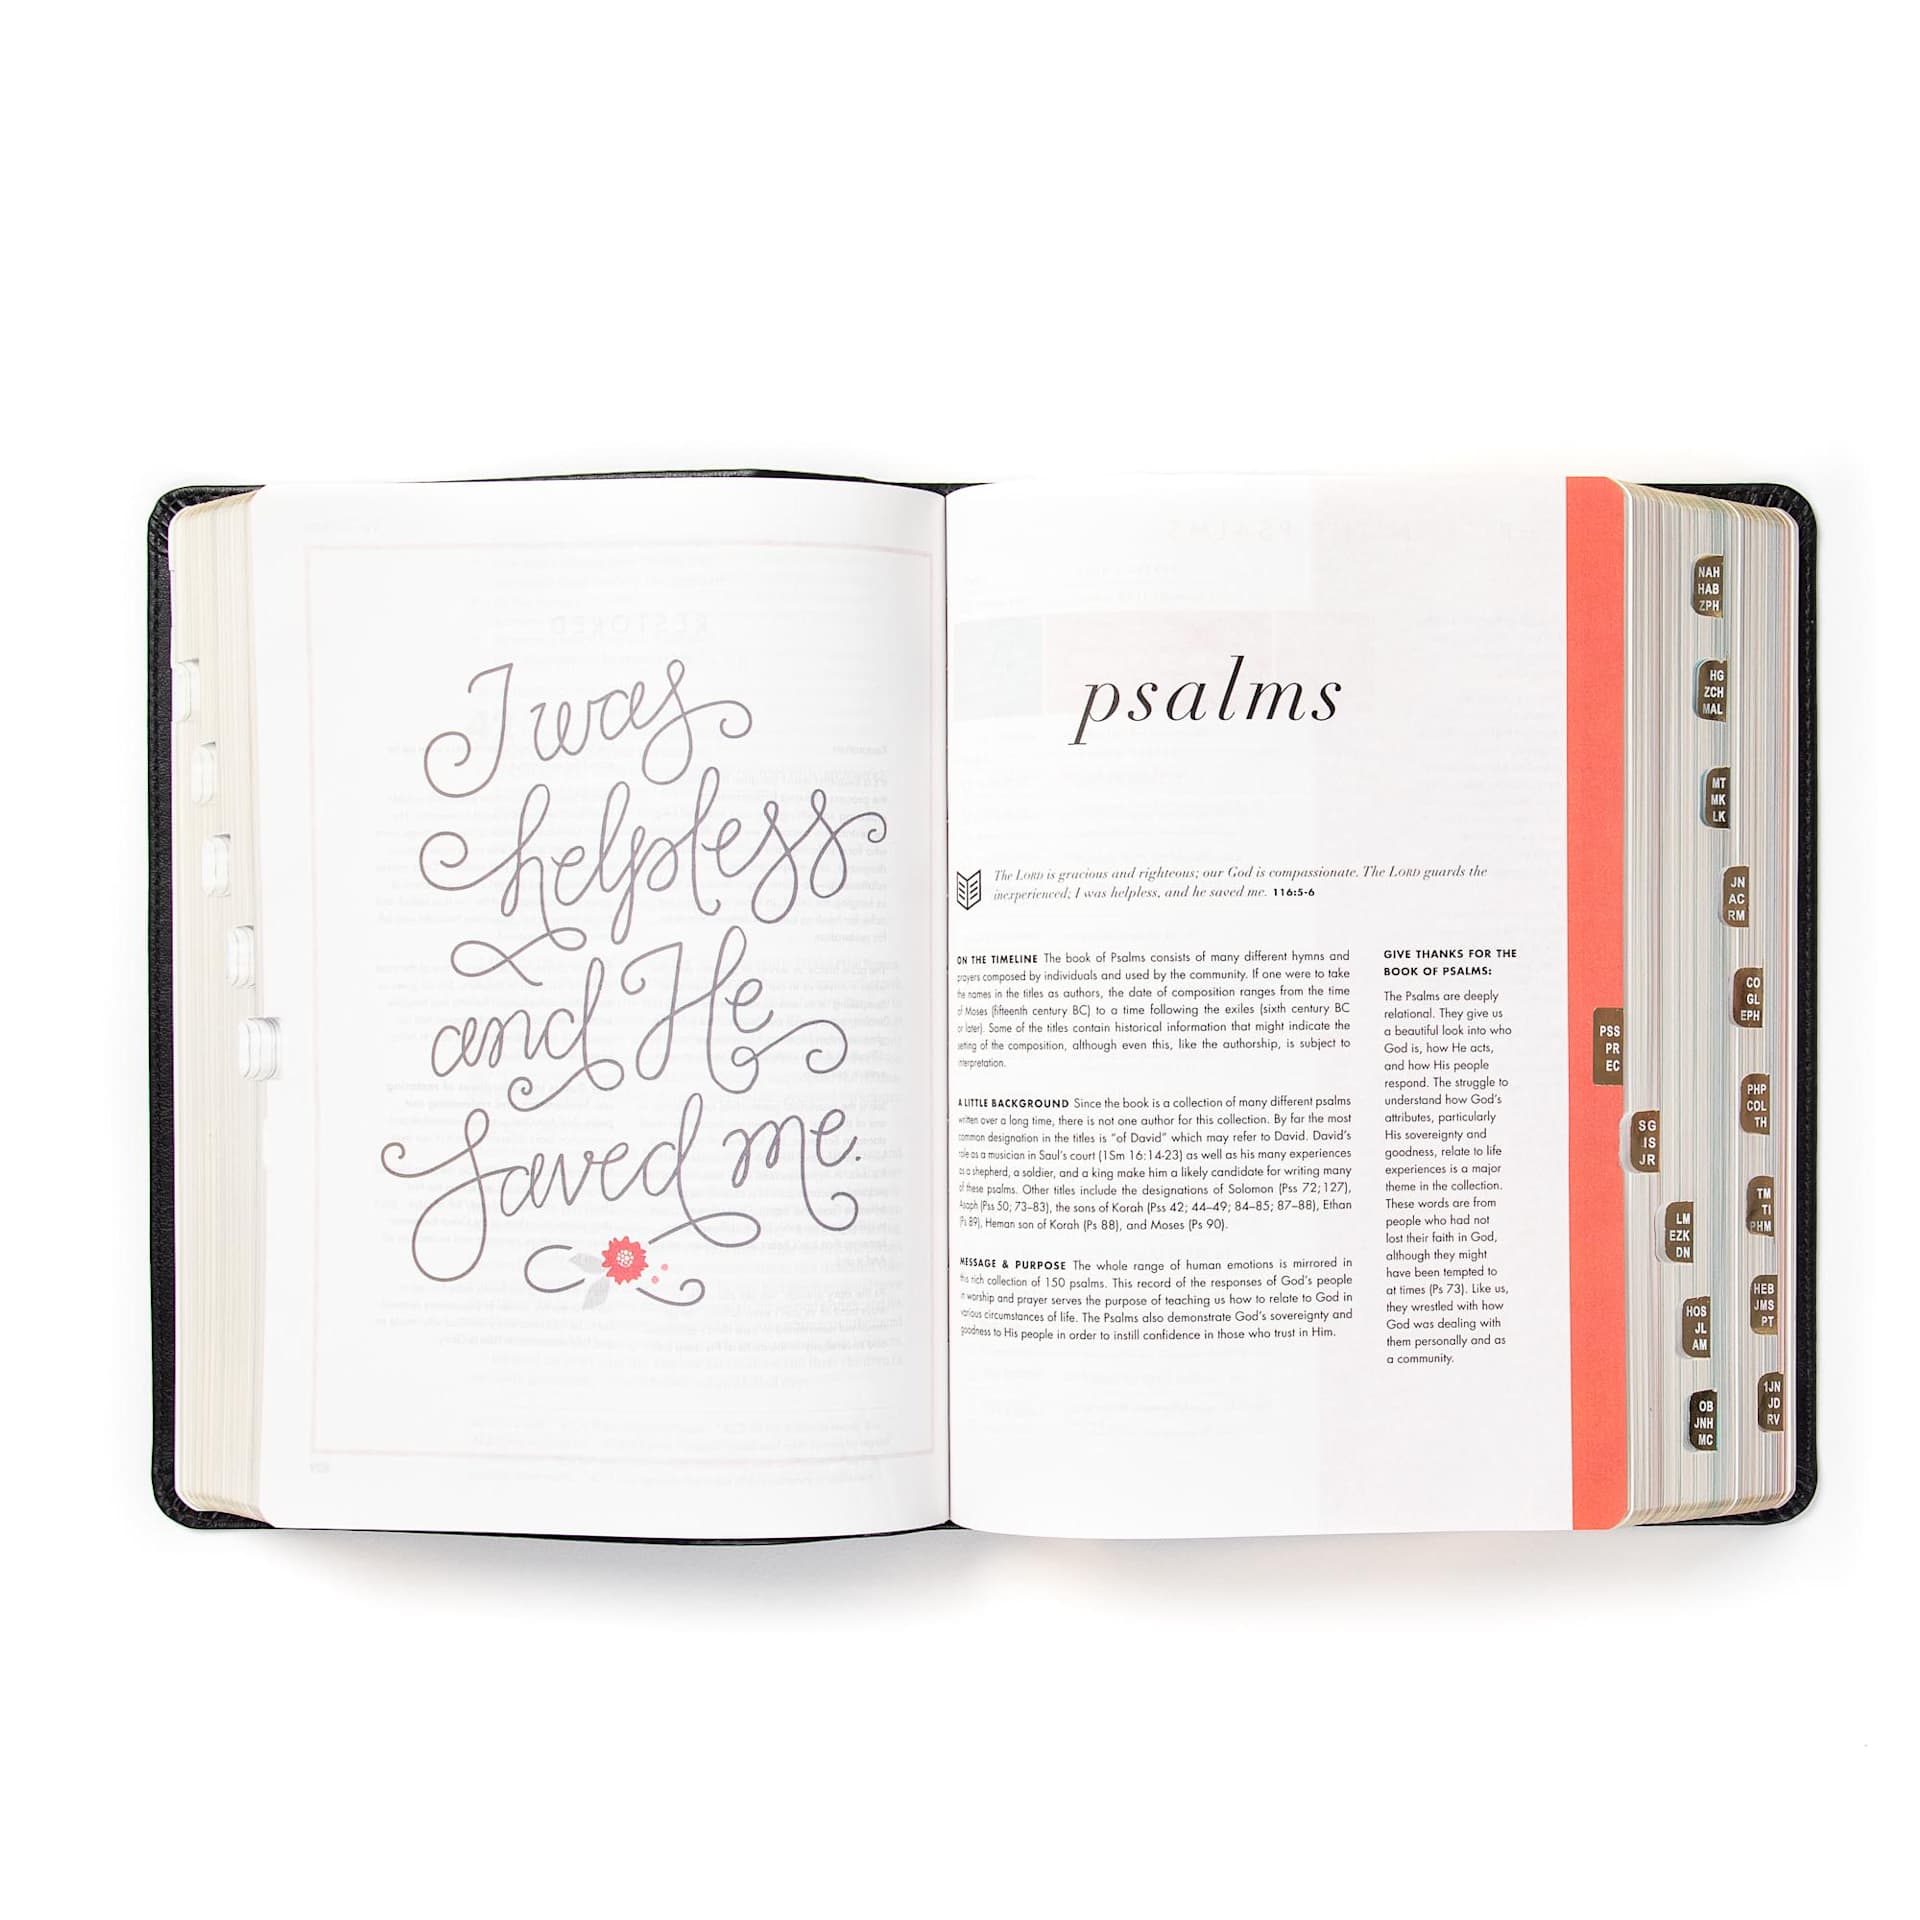 I was
helpless
and He
saved me.
psalms
The LORD is gracious and righteous; our God is compassionate. The LORD guards the
inexperienced; I was helpless, and he saved me. 116:5-6
ON THE TIMELINE The book of Psalms consists of many different hymns and
prayers composed by individuals and used by the community. If one were to take
the names in the titles as authors, the date of composition ranges from the time
of Moses (fifteenth century BC) to a time following the exiles (sixth century BC
or later). Some of the titles contain historical information that might indicate the
setting of the composition, although even this, like the authorship, is subject to
interpretation.
A LITTLE BACKGROUND Since the book is a collection of many different psalms
written over a long time, there is not one author for this collection. By far the most
common designation in the titles is “of David” which may refer to David. David’s
role as a musician in Saul’s court (1Sm 16:14-23) as well as his many experiences
as a shepherd, a soldier, and a king make him a likely candidate for writing many
of these psalms. Other titles include the designations of Solomon (Pss 72; 127),
Asaph (Pss 50; 73–83), the sons of Korah (Pss 42; 44–49; 84–85; 87–88), Ethan
(Ps 89), Heman son of Korah (Ps 88), and Moses (Ps 90).
MESSAGE & PURPOSE The whole range of human emotions is mirrored in
this rich collection of 150 psalms. This record of the responses of God’s people
in worship and prayer serves the purpose of teaching us how to relate to God in
various circumstances of life. The Psalms also demonstrate God’s sovereignty and
goodness to His people in order to instill confidence in those who trust in Him.
GIVE THANKS FOR THE
BOOK OF PSALMS:
The Psalms are deeply
relational. They give us
a beautiful look into who
God is, how He acts,
and how His people
respond. The struggle to
understand how God’s
attributes, particularly
His sovereignty and
goodness, relate to life
experiences is a major
theme in the collection.
These words are from
people who had not
lost their faith in God,
although they might
have been tempted to
at times (Ps 73). Like us,
they wrestled with how
God was dealing with
them personally and as
a community.
PSS
PR
EC
SG
IS
JR
LM
EZK
DN
HOS
JL
AM
OB
JNH
MC
NAH
HAB
ZPH
HG
ZCH
MAL
MT
MK
LK
JN
AC
RM
CO
GL
EPH
PHP
COL
TH
TM
TI
PHM
HEB
JMS
PT
1JN
JD
RV